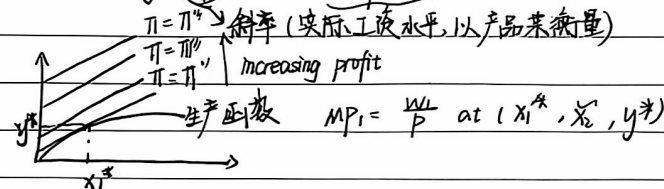 π = π''' → 斜率 (实际工资水平, 以产品来衡量)
π = π''
π = π' ↑ increasing profit
y* 生产函数 MP₁ = w₁/p at (x₁*, x̃₂, y*)
x₁*